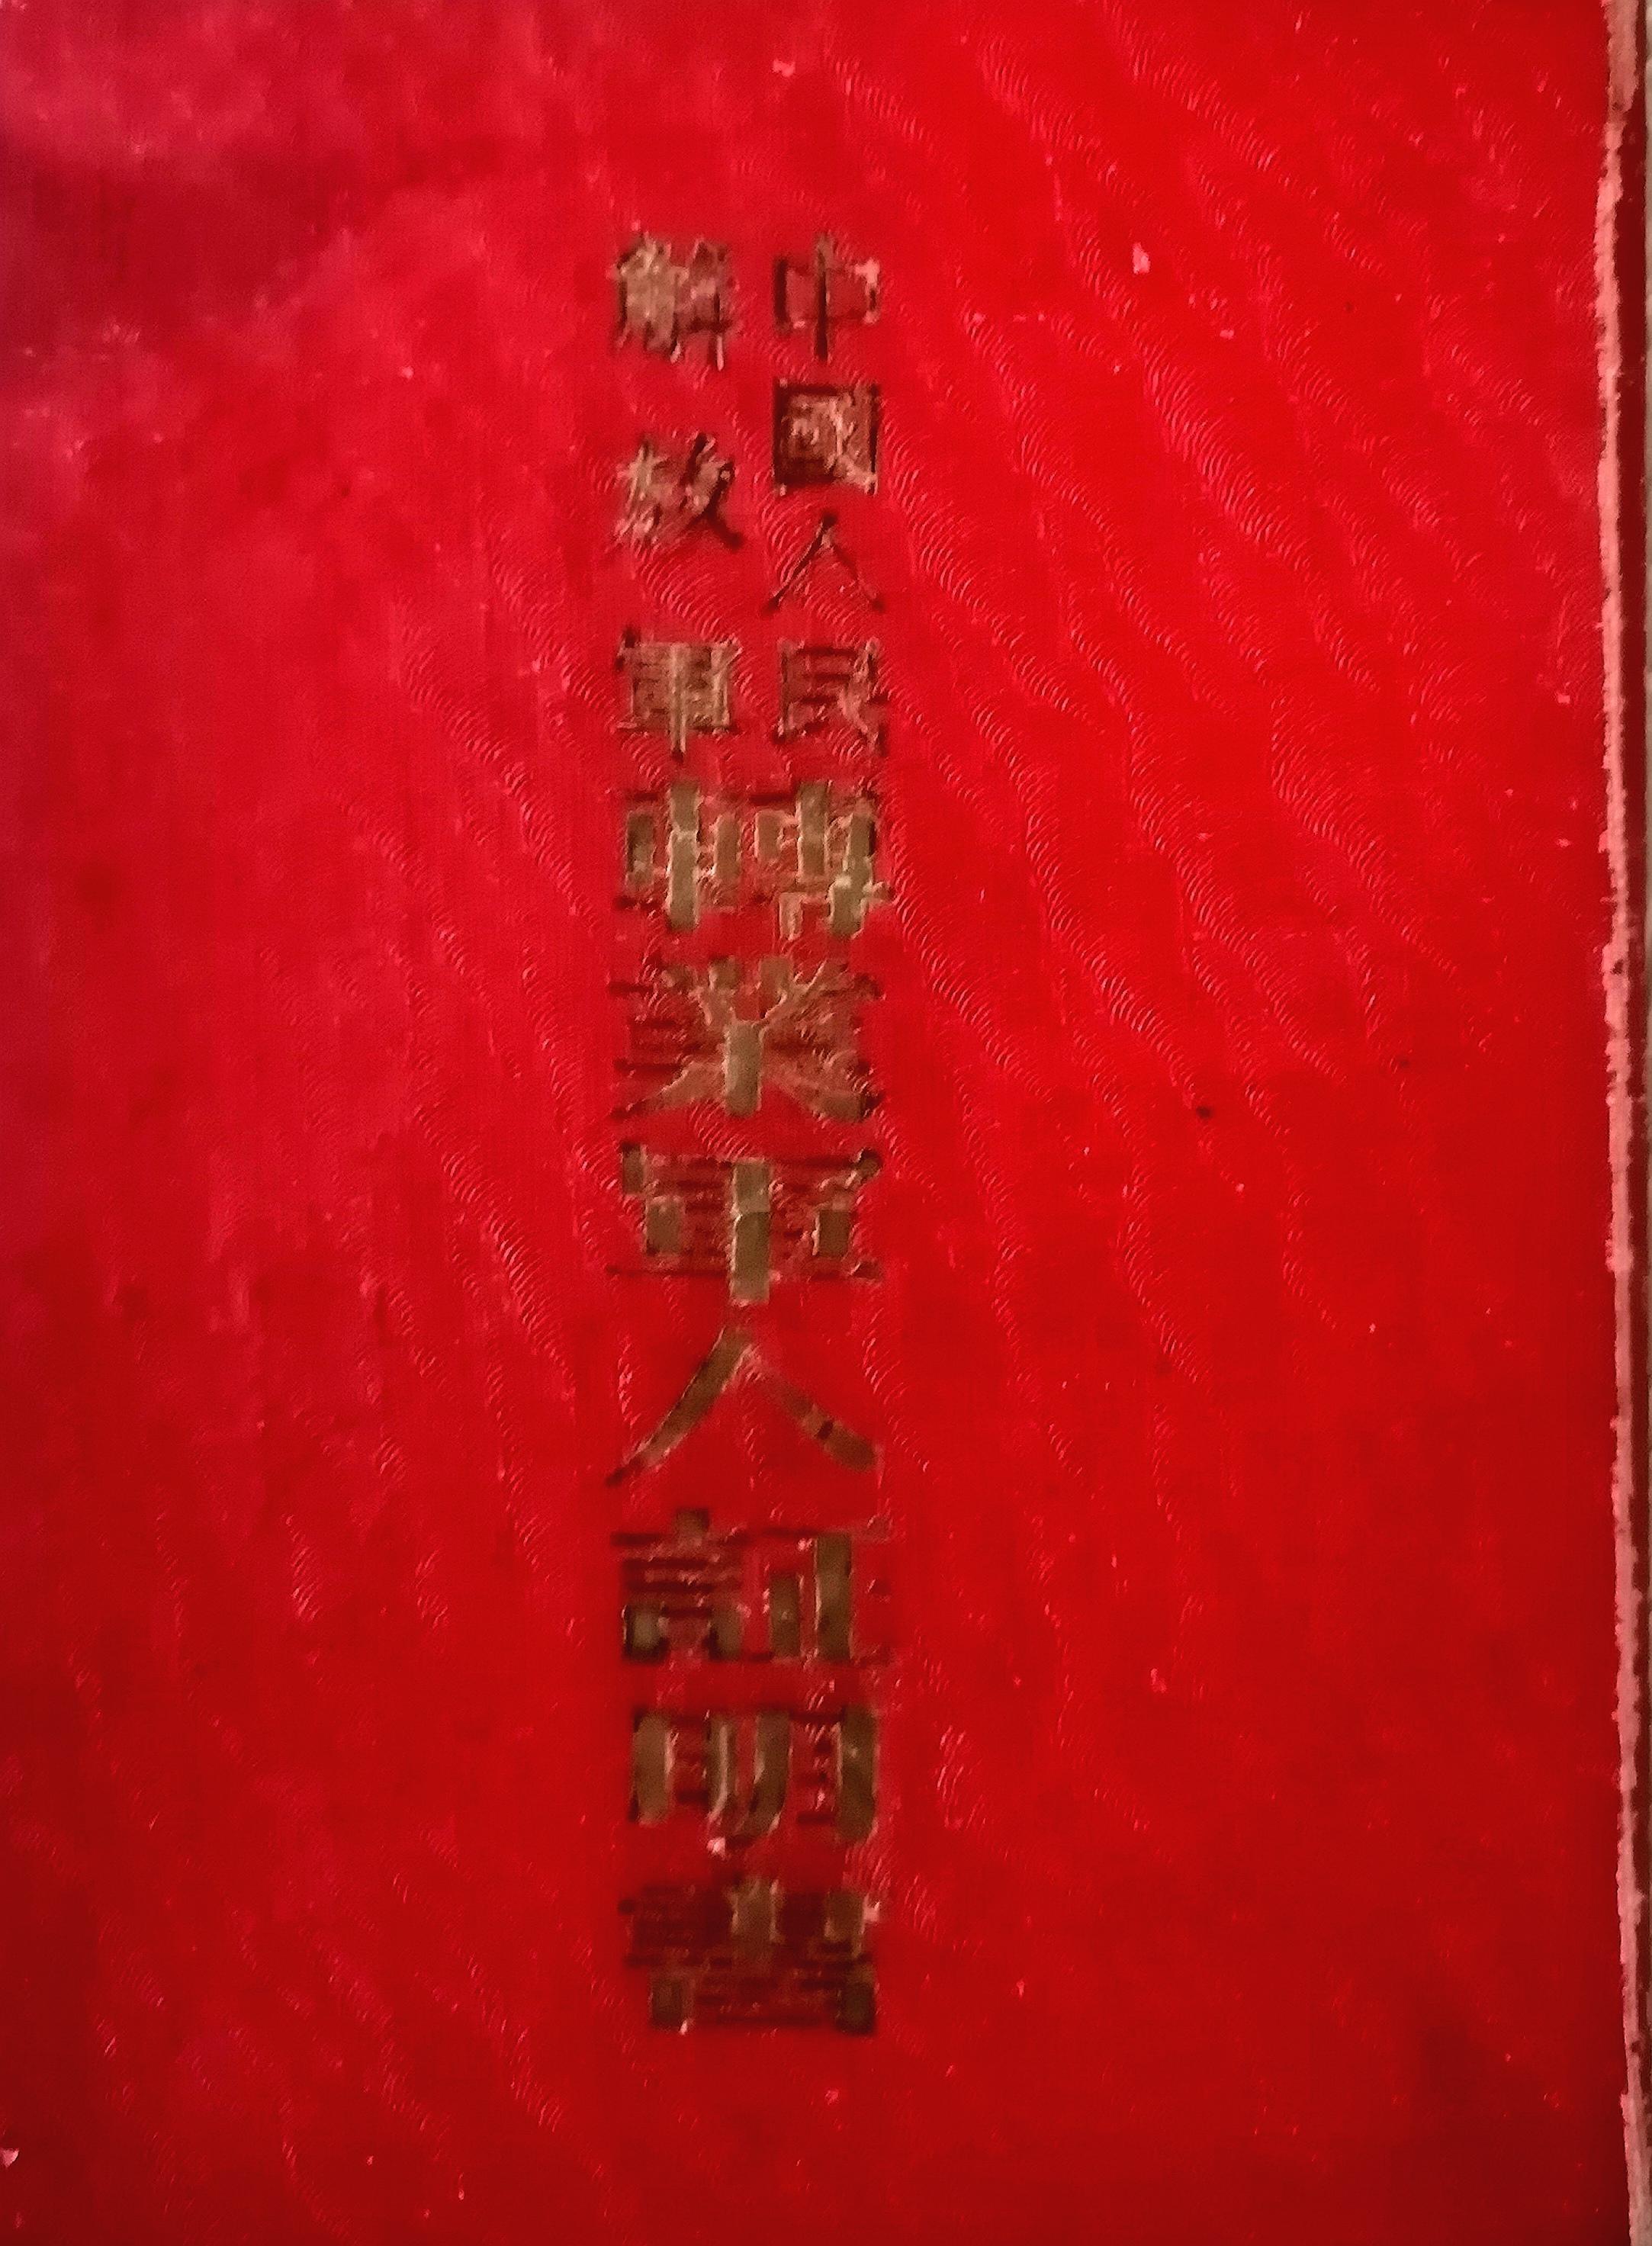 中國人民
解放軍
轉業軍人証明書